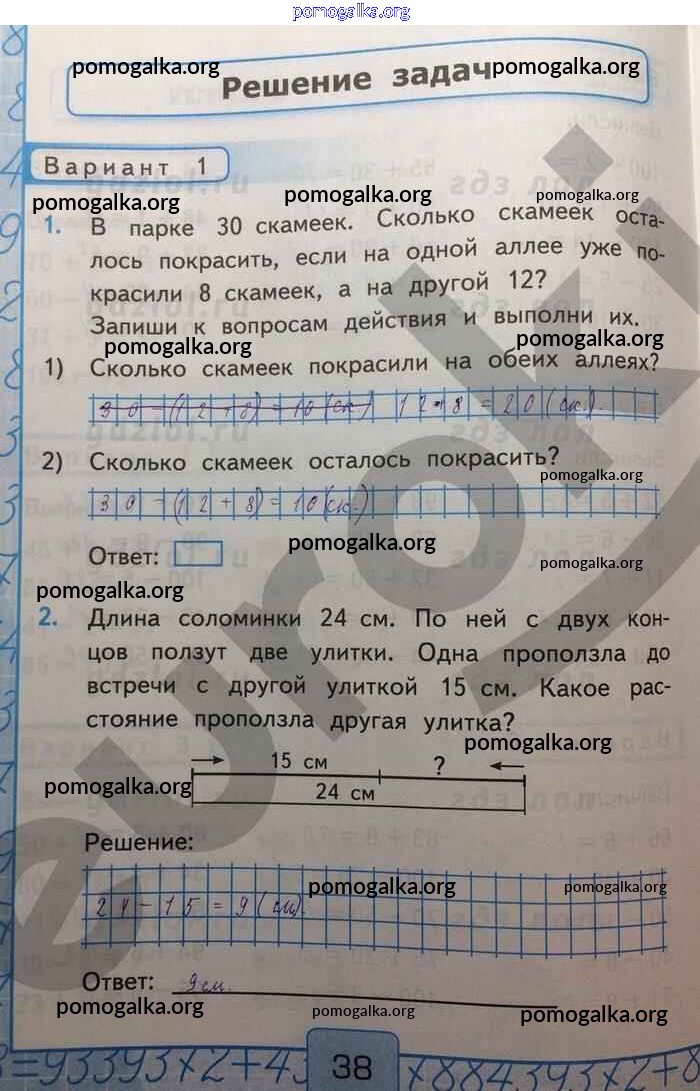 pomogalka.org
pomogalka.org
Решение задач
pomogalka.org
Вариант 1
pomogalka.org
pomogalka.org
pomogalka.org
1. В парке 30 скамеек. Сколько скамеек оста-
лось покрасить, если на одной аллее уже по-
красили 8 скамеек, а на другой 12?
Запиши к вопросам действия и выполни их.
pomogalka.org
pomogalka.org
1) Сколько скамеек покрасили на обеих аллеях?
30 - (12 + 8) = 10 (ск.) 12 + 8 = 20 (ск.).
2) Сколько скамеек осталось покрасить?
pomogalka.org
30 - (12 + 8) = 10 (ск.)
pomogalka.org
Ответ:
pomogalka.org
pomogalka.org
2. Длина соломинки 24 см. По ней с двух кон-
цов ползут две улитки. Одна проползла до
встречи с другой улиткой 15 см. Какое рас-
стояние проползла другая улитка?
pomogalka.org
15 см ?
pomogalka.org
24 см
Решение:
pomogalka.org
pomogalka.org
24 - 15 = 9 (см).
Ответ: 9 см.
pomogalka.org
pomogalka.org
pomogalka.org
38
euroki